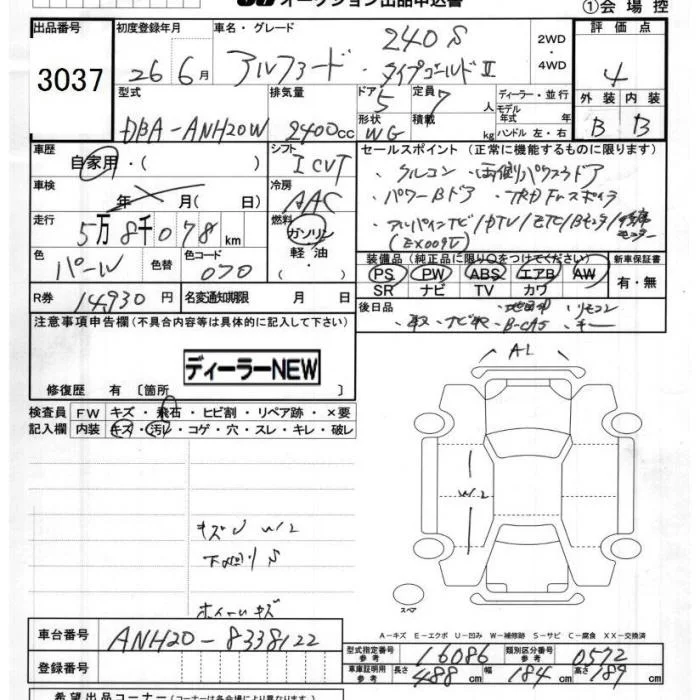 オークション出品申込書
①会場控
出品番号 初度登録年月 車名・グレード 評価点
3037 26 6月 アルファード 240S 2WD・4WD 4
タイプゴールドⅡ
型式 排気量 ドア 定員 ディーラー・並行 外装 内装
DBA-ANH20W 2400cc 5 7人 モデル年式 年 B B
形状 積載 ハンドル 左・右
WG kg
車歴 シフト セールスポイント (正常に機能するものに限ります)
自家用・( ) I CVT ・クルコン ・両側パワースラドア
車検 冷房 ・パワーBドア ・TRD Frスポイラ
年 月(日) AAC ・アルパインナビ/DTV/ETC/Bモニタ/
走行 燃料 (EX009V) モニター
5万8千078km ガソリン・軽油・( )
色 色替 色コード 装備品(純正品に限り○をつけてください) 新車保証書
パール 070 PS PW ABS エアB AW 有・無
SR ナビ TV カワ
R券 14,930円 名変通知期限 月 日 後日品
・取 ・ナビ取 ・B-CAS ・キー ・リモコン
注意事項申告欄(不具合内容等は具体的に記入して下さい)
ディーラーNEW
修復歴 有〔箇所 〕
A1
検査員 FW キズ・飛石・ヒビ割・リペア跡・×要
記入欄 内装 キズ・汚レ・コゲ・穴・スレ・キレ・破レ
W2
キズU W2
下廻りS
ホイールキズ
スペア
A-キズ E-エクボ U-凹み W-補修跡 S-サビ C-腐食 XX-交換済
車台番号 ANH20-8338122
型式指定番号 参考 16086 類別区分番号 参考 0572
登録番号
車庫証明用 参考 長さ 488cm 幅 184cm 高さ 189cm
希望出品コーナー(コーナーは各会場により異なります)